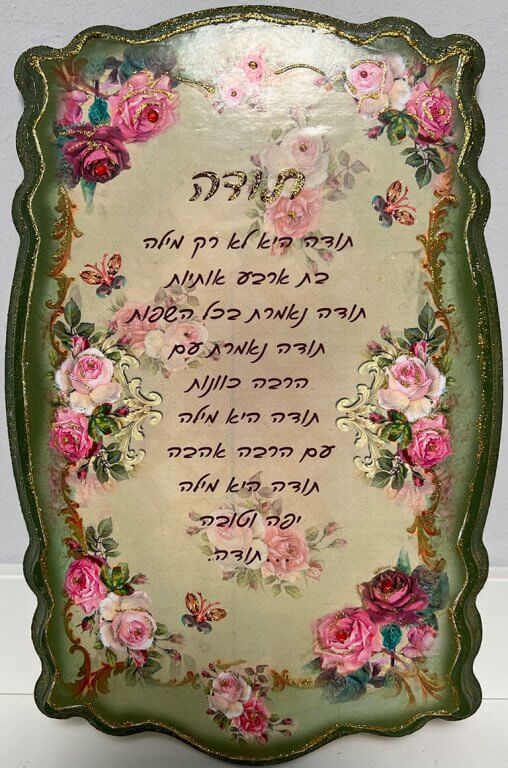 תודה
תודה היא לא רק מילה
בת ארבע אותיות
תודה נאמרת בכל השפות
תודה נאמרת עם
הרבה כוונות
תודה היא מילה
עם הרבה אהבה
תודה היא מילה
יפה וטובה
...תודה.